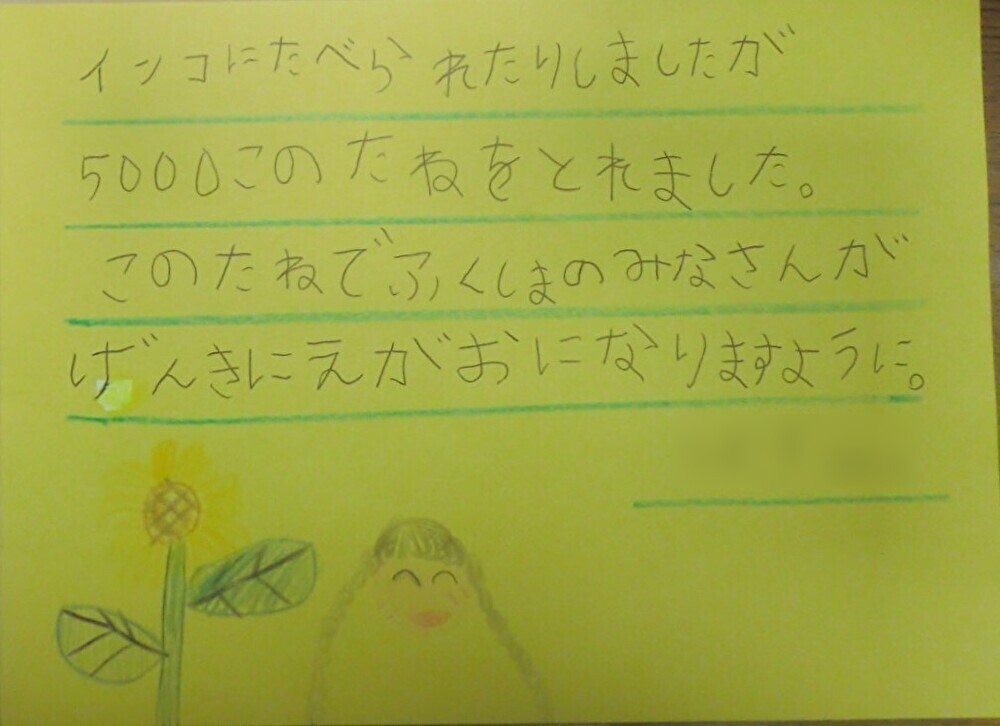 インコにたべられたりしましたが
5000このたねをとれました。
このたねでふくしまのみなさんが
げんきにえがおになりますように。